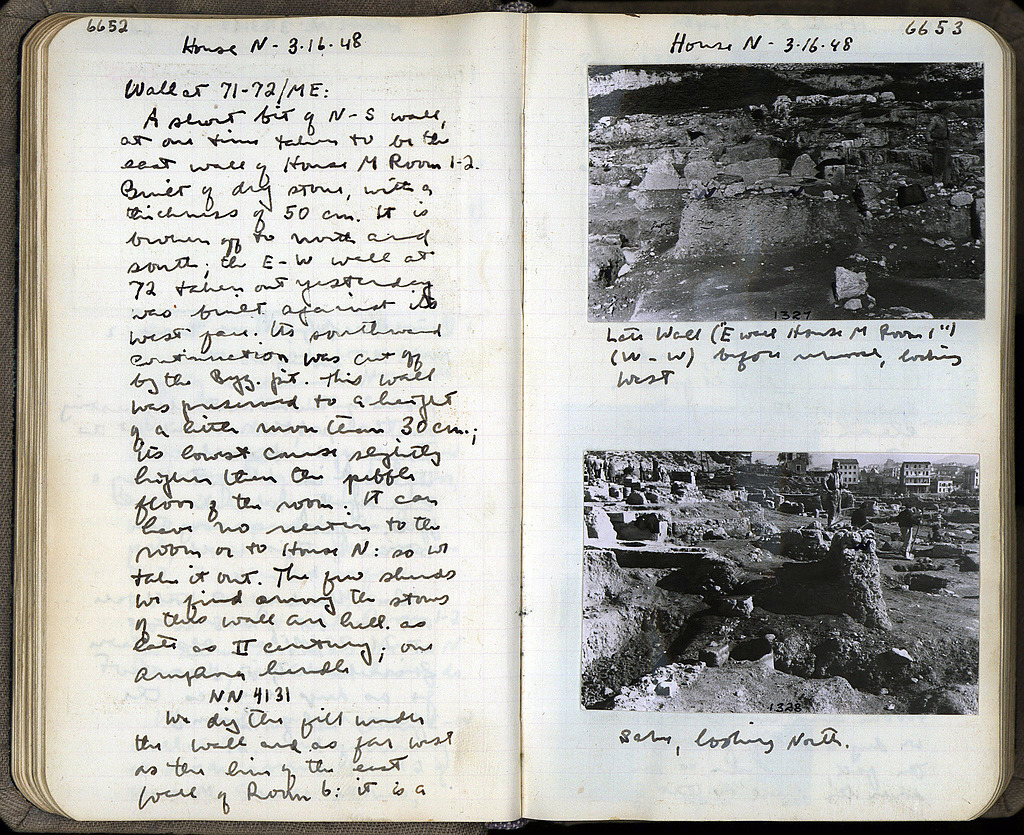 6652
House N - 3.16.48
Wall at 71-72/ME:
A short bit of N-S wall,
at one time taken to be the
east wall of House M Room 1-2.
Built of dry stone, with a
thickness of 50 cm. It is
broken off to north and
south; the E-W wall at
72 taken out yesterday
was built against its
west face. Its southward
continuation was cut off
by the Byz. pit. This wall
was preserved to a height
of a little more than 30 cm.;
its lowest course slightly
higher than the pebble
floor of the room. It can
have no relation to the
room or to House N: so we
take it out. The few sherds
we find among the stones
of this wall are hell. as
late as II century; one
amphora handle
NN 4131
We dig the fill under
the wall and as far west
as the line of the east
wall of Room 6: it is a
6653
House N - 3.16.48
1327
Late Wall ("E wall House M Room 1")
(W-W) before removal, looking
West
1328
Same, looking North.